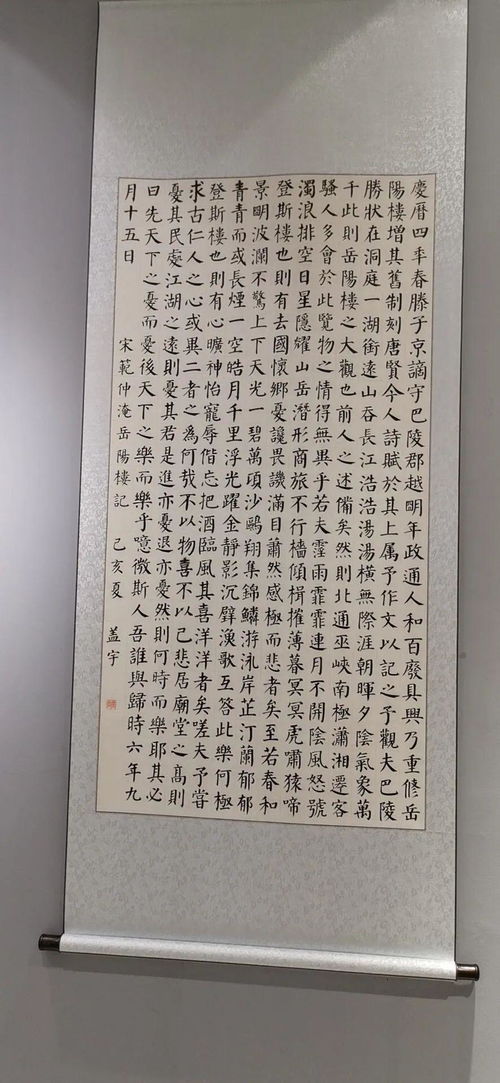 慶曆四年春滕子京謫守巴陵郡越明年政通人和百廢具興乃重修岳
陽樓增其舊制刻唐賢今人詩賦於其上属予作文以記之予觀夫巴陵
勝狀在洞庭一湖銜遠山吞長江浩浩湯湯橫無際涯朝暉夕陰氣象萬
千此則岳陽樓之大觀也前人之述備矣然則北通巫峽南極瀟湘遷客
騷人多會於此覽物之情得無異乎若夫霪雨霏霏連月不開陰風怒號
濁浪排空日星隱耀山岳潛形商旅不行檣傾楫摧薄暮冥冥虎嘯猿啼
登斯樓也則有去國懷鄉憂讒畏譏滿目蕭然感極而悲者矣至若春和
景明波瀾不驚上下天光一碧萬頃沙鷗翔集錦鱗游泳岸芷汀蘭郁郁
青青而或長煙一空皓月千里浮光躍金靜影沉璧漁歌互答此樂何極
登斯樓也則有心曠神怡寵辱偕忘把酒臨風其喜洋洋者矣嗟夫予嘗
求古仁人之心或異二者之為何哉不以物喜不以己悲居廟堂之高則
憂其民處江湖之遠則憂其君是進亦憂退亦憂然則何時而樂耶其必
曰先天下之憂而憂後天下之樂而樂乎噫微斯人吾誰與歸時六年九
月十五日 宋範仲淹岳陽樓記 己亥夏 盖宇